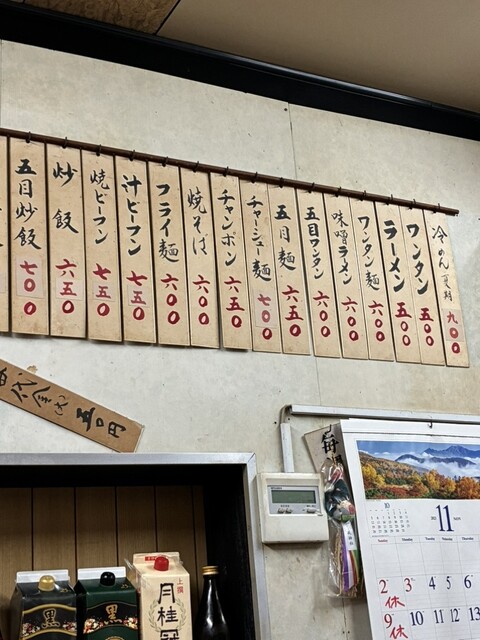 冷めん(夏期) 九〇〇
ワンタン 五〇〇
ラーメン 五〇〇
ワンタン麺 六〇〇
味噌ラメン 六〇〇
五目ワンタン 六〇〇
五目麺 六五〇
チャーシュー麺 七〇〇
チャンポン 六五〇
焼そば 六〇〇
フライ麺 六〇〇
汁ビーフン 七五〇
焼ビーフン 七五〇
炒飯 六五〇
五目炒飯 七〇〇
五〇円
10
11
2 3 4 5 6 7
休
9 10 11 12 13
休
黒
黒
上撰
月桂冠